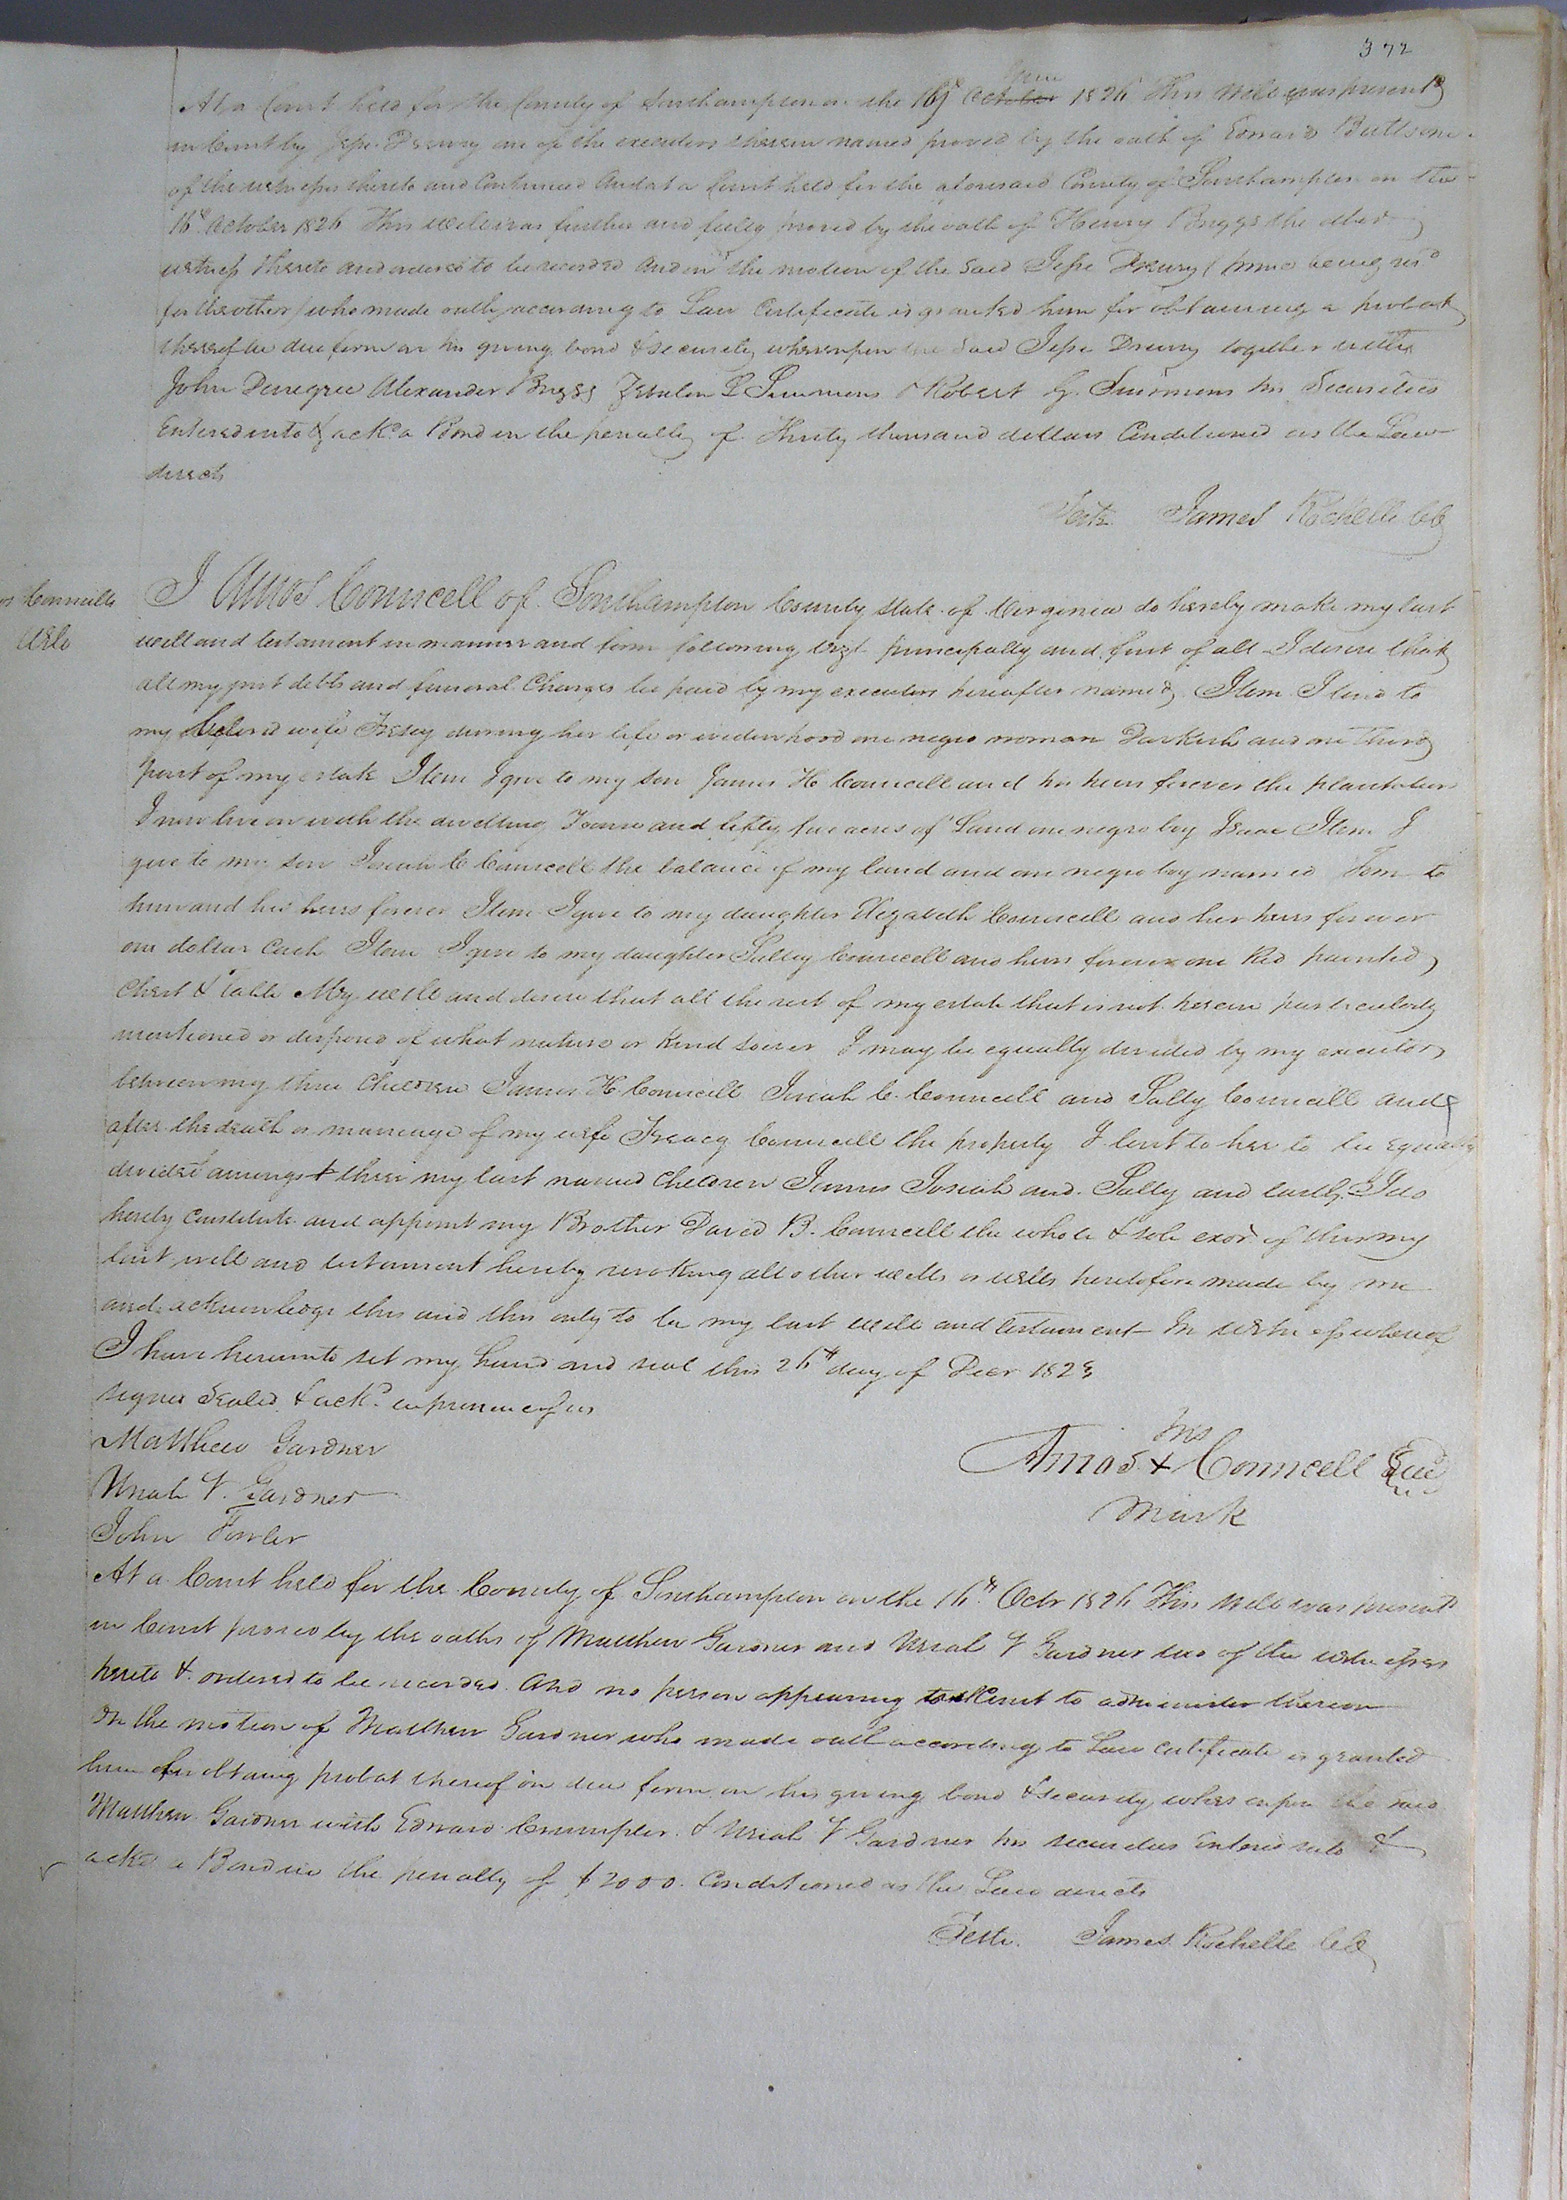 372
At a Court held for the County of Southampton on the 19th June October 1826 This Will was presentd
in Court by Jesse Drewry one of the executors therein named proved by the oath of Edward Butts one
of the witnesses thereto and Continued And at a Court held for the aforesaid County of Southampton on the
16th October 1826 This Will was further and fully proved by the oath of Henry Briggs the other
witness thereto and ordered to be recorded and on the motion of the said Jesse Drewry ( being
for the other ) who made oath according to Law Certificate is granted him for obtaining a probat
thereof in due form on his giving bond & security whereupon the said Jesse Drewry together with
John Denegree Alexander Briggs Zebulon Simmons & Robert G. Simmons his Securities
Entered into & ackd a Bond in the penalty of Thirty thousand dollars Conditioned as the Law
directs
Teste James Rochelle Clk
Councills
Will
I Amos Councell of Southampton County State of Virginia do hereby make my last
will and testament in manner and form following Vizt principally and first of all I desire that
all my just debts and funeral Charges be paid by my executor hereafter named, Item I lend to
my beloved wife during her life or widowhood one negro woman Darkesh and one third
part of my estate Item I give to my son James H Councell and his heirs forever the plantation
I now live on with the dwelling House and fifty five acres of Land one negro boy Isaac Item I
give to my son Josiah C Councell the balance of my land and one negro boy named Tom to
him and his heirs forever Item I give to my daughter Elizabeth Councell and her heirs forever
one dollar Cash Item I give to my daughter Sally Councell and heirs forever one Red painted
Chest & Table My will and desire that all the rest of my estate that is not herein particularly
mentioned or disposed of what nature or kind soever I may be equally divided by my executor
between my three Children James H. Councell Josiah C. Councell and Sally Councell and
after the death or marriage of my wife Councell the property I lent to her to be equally
divided amongst three my last named Children James Josiah and Sally and lastly I do
hereby Constitute and appoint my Brother David B. Councell the whole & sole exor of this my
last will and testament hereby revoking all other wills or wills heretofore made by me
and acknowledge this and this only to be my last will and testament In witness whereof
I have hereunto set my hand and seal this 26th day of Decr 1823
signed Sealed & ackd in presence of us
Matthew Gardner
Uriah V. Gardner
John Fowler
his
Amos + Councell Seal
Mark
At a Court held for the County of Southampton on the 16th Octr 1826 This Will was presentd
in Court proved by the oaths of Matthew Gardner and Uriah V Gardner two of the witnesses
hereto & ordered to be recorded. And no person appearing to administer thereon
On the motion of Matthew Gardner who made oath according to Law certificate is granted
him for obtaing probat thereof in due form on his giving bond & security whereupon the said
Matthew Gardner with Edward Crumpler & Uriah V Gardner his securities Entered into &
ackd a Bond in the penalty of $2000. Conditioned as the Law directs
Teste. James Rochelle Clk